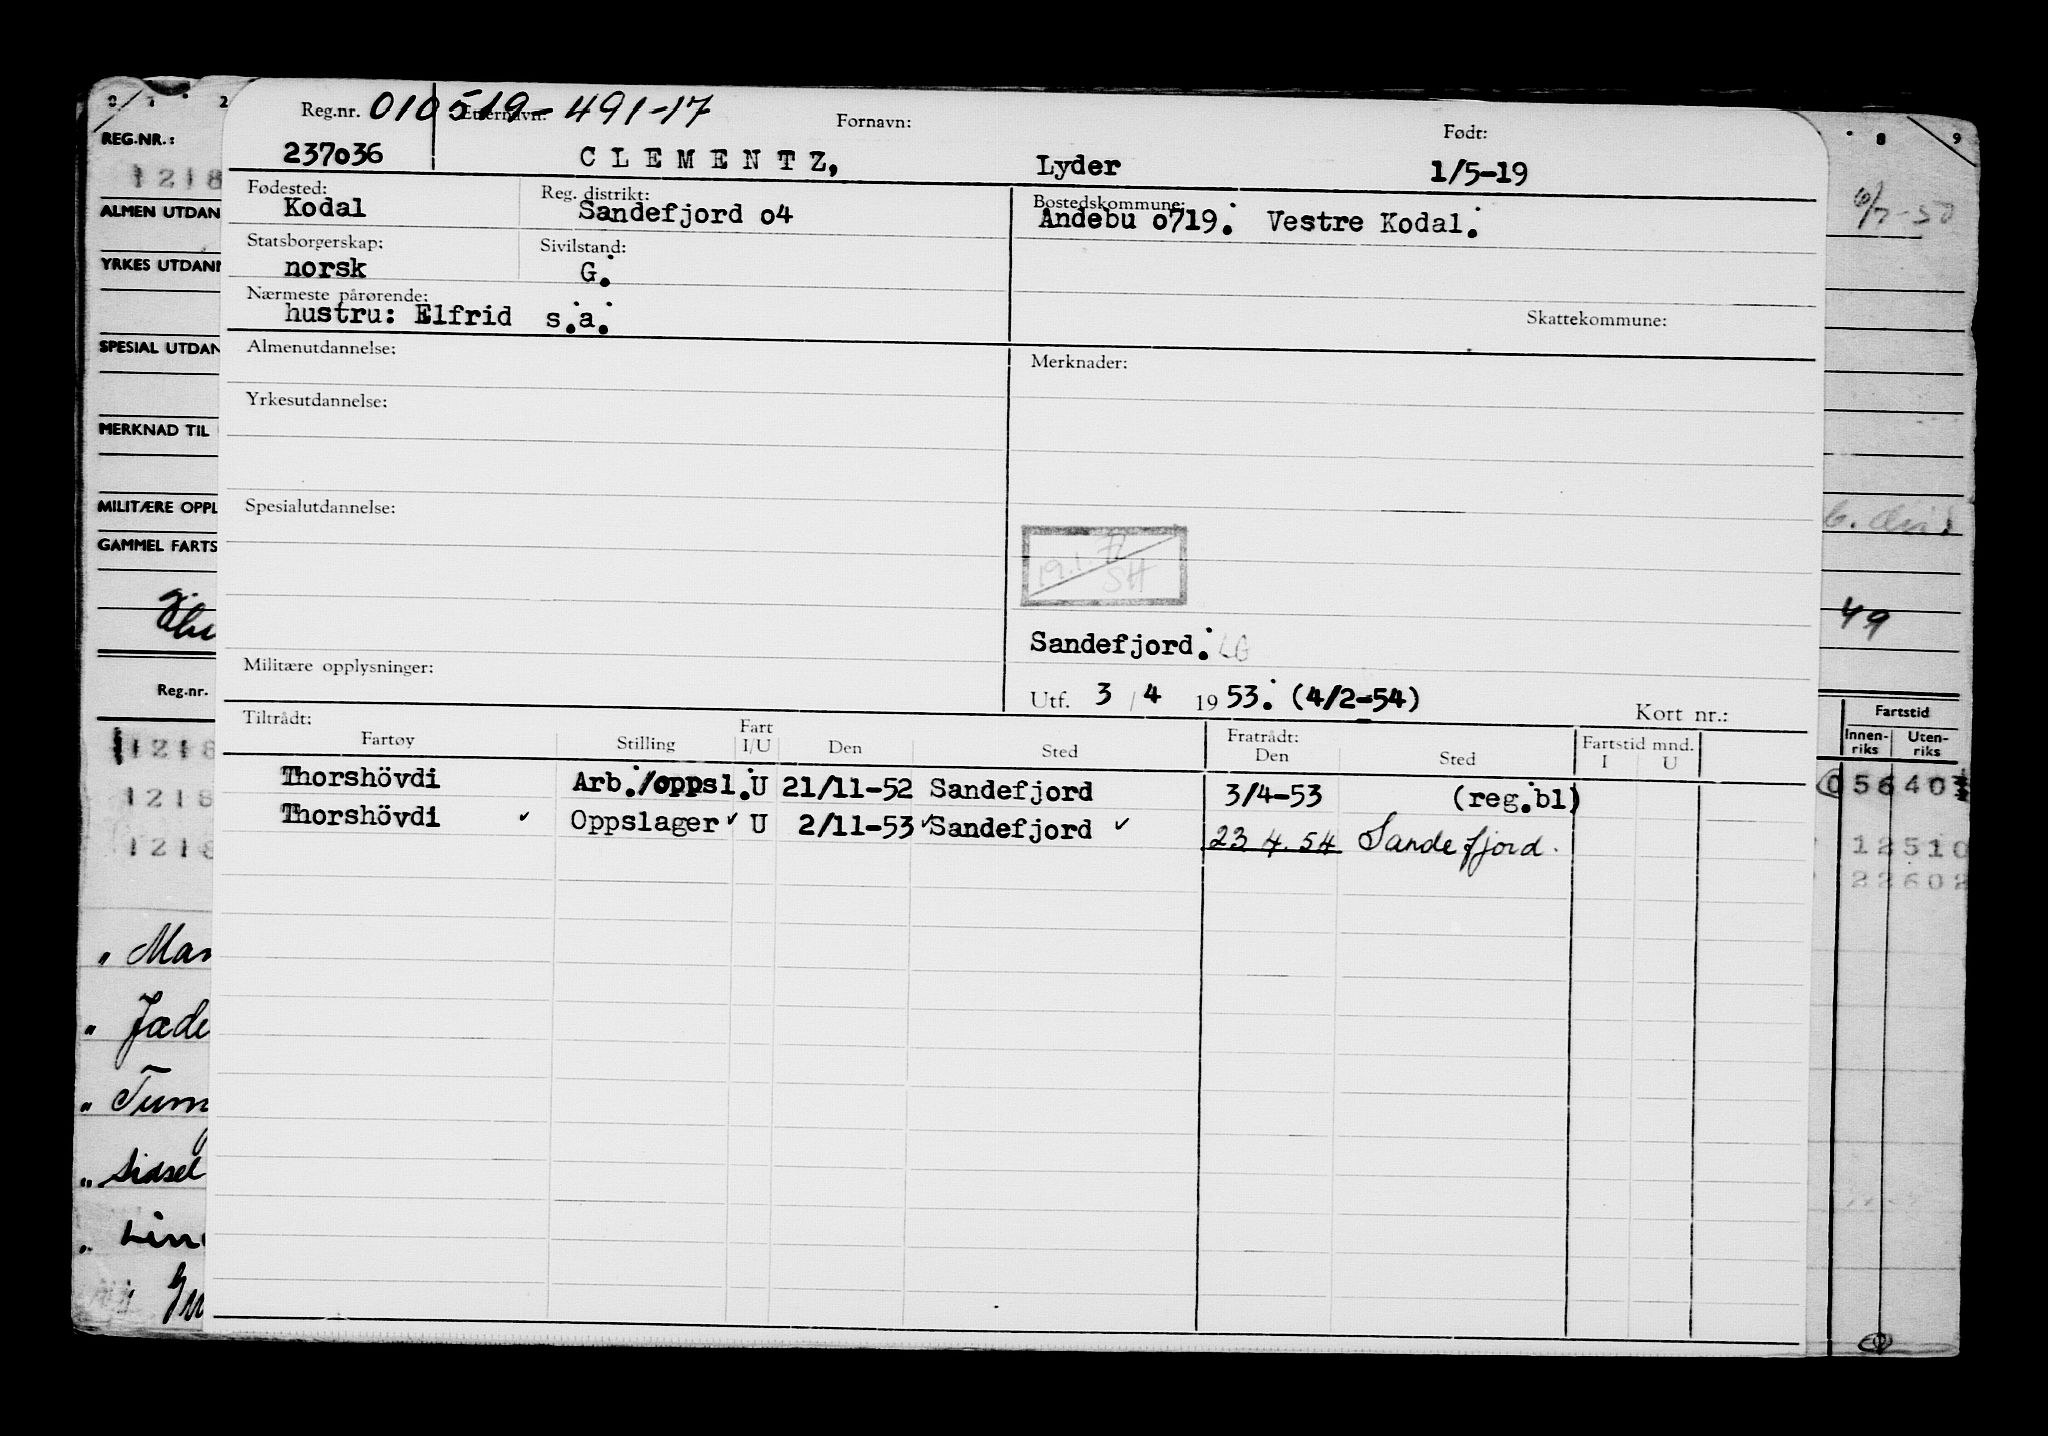 Reg.nr. 010519-491-17 Etternavn: Fornavn: Født:
237036 CLEMENTZ, Lyder 1/5-19
Fødested: Reg. distrikt: Bostedskommune:
Kodal Sandefjord o4 Andebu o719. Vestre Kodal.
Statsborgerskap: Sivilstand:
norsk G.
Nærmeste pårørende:
hustru: Elfrid s.a. Skattekommune:
Almenutdannelse: Merknader:
Yrkesutdannelse:
Spesialutdannelse:
Sandefjord.
Militære opplysninger:
Utf. 3 / 4 1953. (4/2-54) Kort nr.:
Tiltrådt: Fratrådt: Fartstid mnd.
Fartøy Stilling Fart I/U Den Sted Den Sted I U
Thorshövdi Arb./oppsl. U 21/11-52 Sandefjord 3/4-53 (reg.bl)
Thorshövdi Oppslager U 2/11-53 Sandefjord 23.4.54 Sandefjord.
REG.NR.:
1218
ALMEN UTDAN
YRKES UTDANN
SPESIAL UTDAN
MERKNAD TIL
MILITÆRE OPPL
GAMMEL FARTS
49
Reg.nr.
Fartstid
Innen-riks Uten-riks
1218 056403
1218 12510
1218 22602
" Man
" Jade
" Sidsel